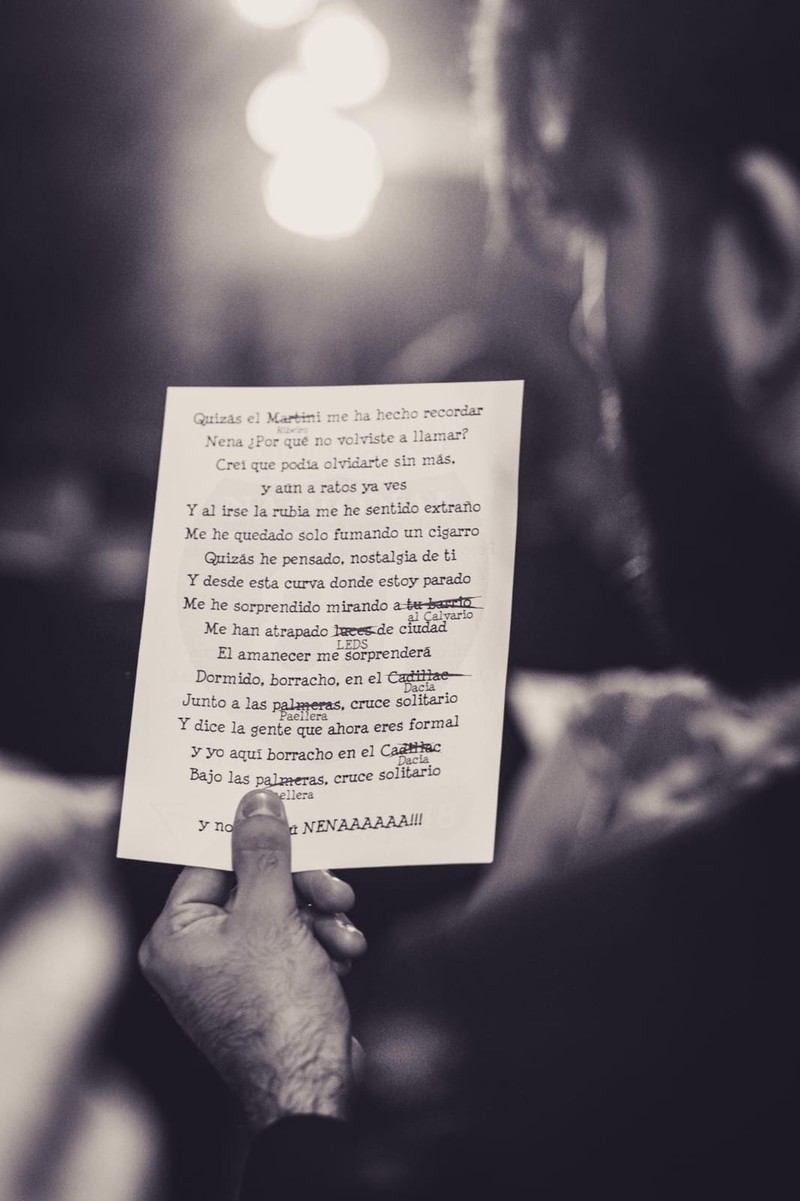 Quizás el Martini me ha hecho recordar
Ribeiro
Nena ¿Por qué no volviste a llamar?
Creí que podía olvidarte sin más,
y aún a ratos ya ves
Y al irse la rubia me he sentido extraño
Me he quedado solo fumando un cigarro
Quizás he pensado, nostalgia de ti
Y desde esta curva donde estoy parado
Me he sorprendido mirando a tu barrio
al Calvario
Me han atrapado luces de ciudad
LEDS
El amanecer me sorprenderá
Dormido, borracho, en el Cadillac
Dacia
Junto a las palmeras, cruce solitario
Paellera
Y dice la gente que ahora eres formal
y yo aquí borracho en el Cadillac
Dacia
Bajo las palmeras, cruce solitario
ellera
y no NENAAAAAA!!!